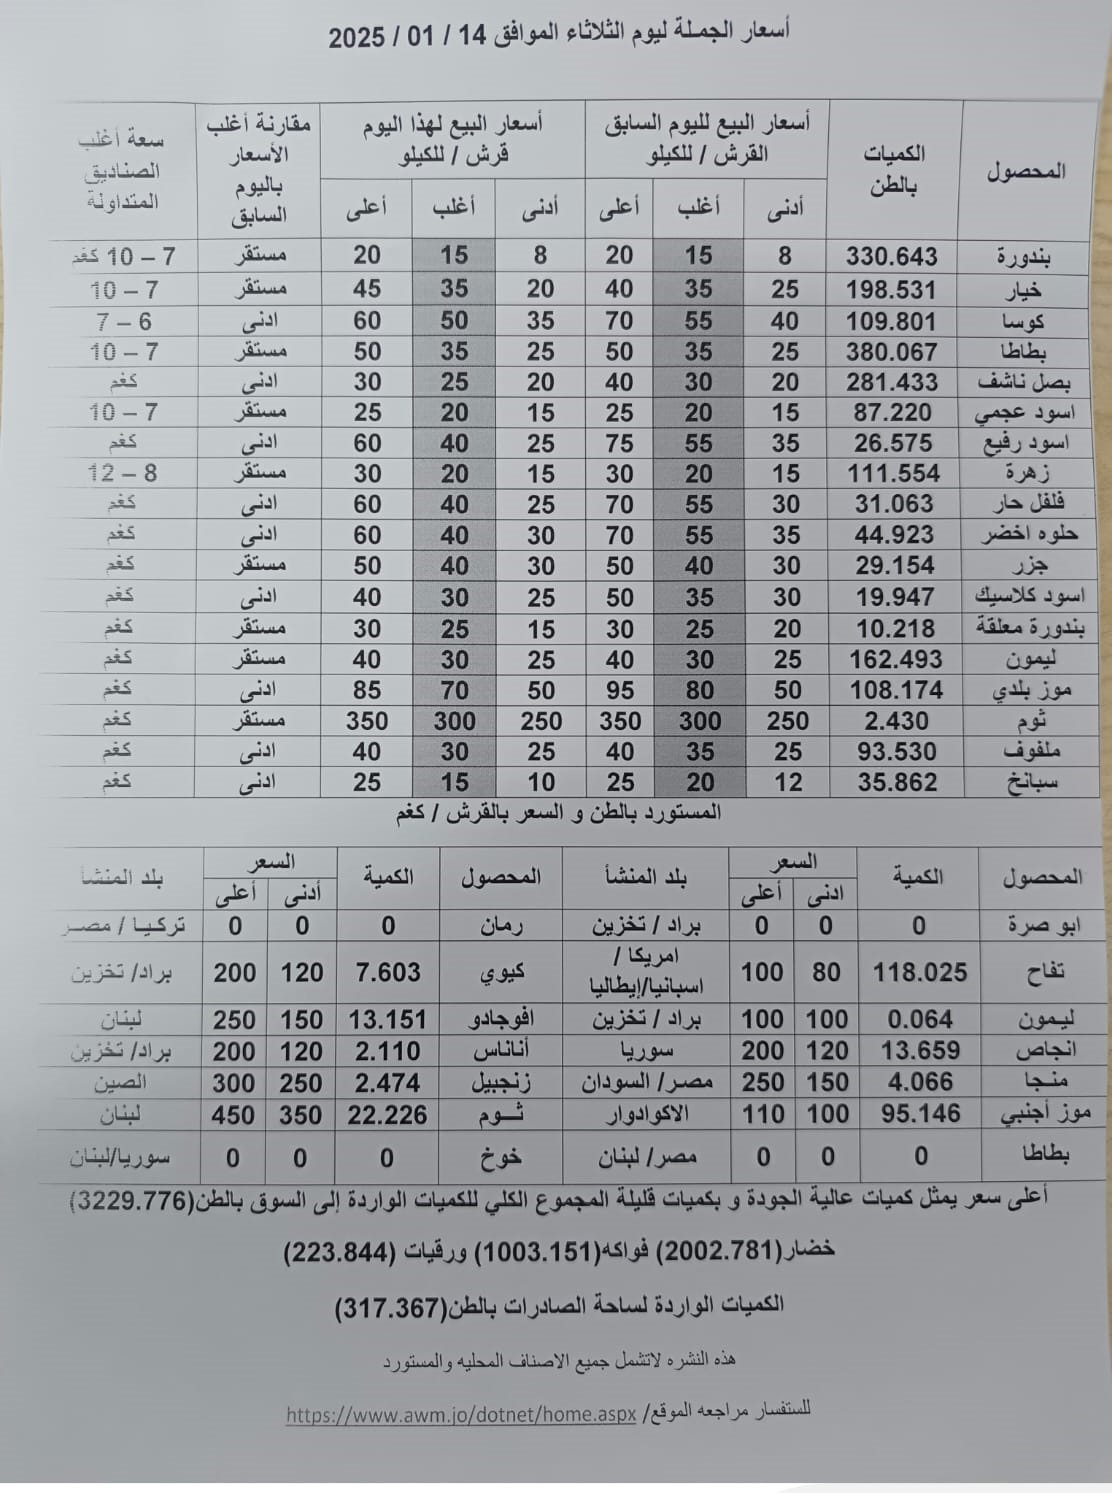 أسعار الجملة ليوم الثلاثاء الموافق 14 / 01 / 2025
المحصول الكميات بالطن أسعار البيع لليوم السابق القرش / للكيلو أسعار البيع لهذا اليوم قرش / للكيلو مقارنة أغلب الأسعار باليوم السابق سعة أغلب الصناديق المتداولة
أدنى أغلب أعلى أدنى أغلب أعلى
بندورة 330.643 8 15 20 8 15 20 مستقر 7 – 10 كغم
خيار 198.531 25 35 40 20 35 45 مستقر 7 – 10
كوسا 109.801 40 55 70 35 50 60 ادنى 6 – 7
بطاطا 380.067 25 35 50 25 35 50 مستقر 7 – 10
بصل ناشف 281.433 20 30 40 20 25 30 ادنى كغم
اسود عجمي 87.220 15 20 25 15 20 25 مستقر 7 – 10
اسود رفيع 26.575 35 55 75 25 40 60 ادنى كغم
زهرة 111.554 15 20 30 15 20 30 مستقر 8 – 12
فلفل حار 31.063 30 55 70 25 40 60 ادنى كغم
حلوه اخضر 44.923 35 55 70 30 40 60 ادنى كغم
جزر 29.154 30 40 50 30 40 50 مستقر كغم
اسود كلاسيك 19.947 30 35 50 25 30 40 ادنى كغم
بندورة معلقة 10.218 20 25 30 15 25 30 مستقر كغم
ليمون 162.493 25 30 40 25 30 40 مستقر كغم
موز بلدي 108.174 50 80 95 50 70 85 ادنى كغم
ثوم 2.430 250 300 350 250 300 350 مستقر كغم
ملفوف 93.530 25 35 40 25 30 40 ادنى كغم
سبانخ 35.862 12 20 25 10 15 25 ادنى كغم
المستورد بالطن و السعر بالقرش / كغم
المحصول الكمية السعر بلد المنشأ المحصول الكمية السعر بلد المنشأ
ادنى أعلى أدنى أعلى
ابو صرة 0 0 0 براد / تخزين رمان 0 0 0 تركيا / مصر
تفاح 118.025 80 100 امريكا / اسبانيا/إيطاليا كيوي 7.603 120 200 براد/ تخزين
ليمون 0.064 100 100 براد / تخزين افوجادو 13.151 150 250 لبنان
انجاص 13.659 120 200 سوريا أناناس 2.110 120 200 براد/ تخزين
منجا 4.066 150 250 مصر/ السودان زنجبيل 2.474 250 300 الصين
موز أجنبي 95.146 100 110 الاكوادوار ثــوم 22.226 350 450 لبنان
بطاطا 0 0 0 مصر/ لبنان خوخ 0 0 0 سوريا/لبنان
أعلى سعر يمثل كميات عالية الجودة و بكميات قليلة المجموع الكلي للكميات الواردة إلى السوق بالطن(3229.776)
خضار(2002.781) فواكه(1003.151) ورقيات (223.844)
الكميات الواردة لساحة الصادرات بالطن(317.367)
هذه النشره لاتشمل جميع الاصناف المحليه والمستورد
للستفسار مراجعه الموقع/ https://www.awm.jo/dotnet/home.aspx